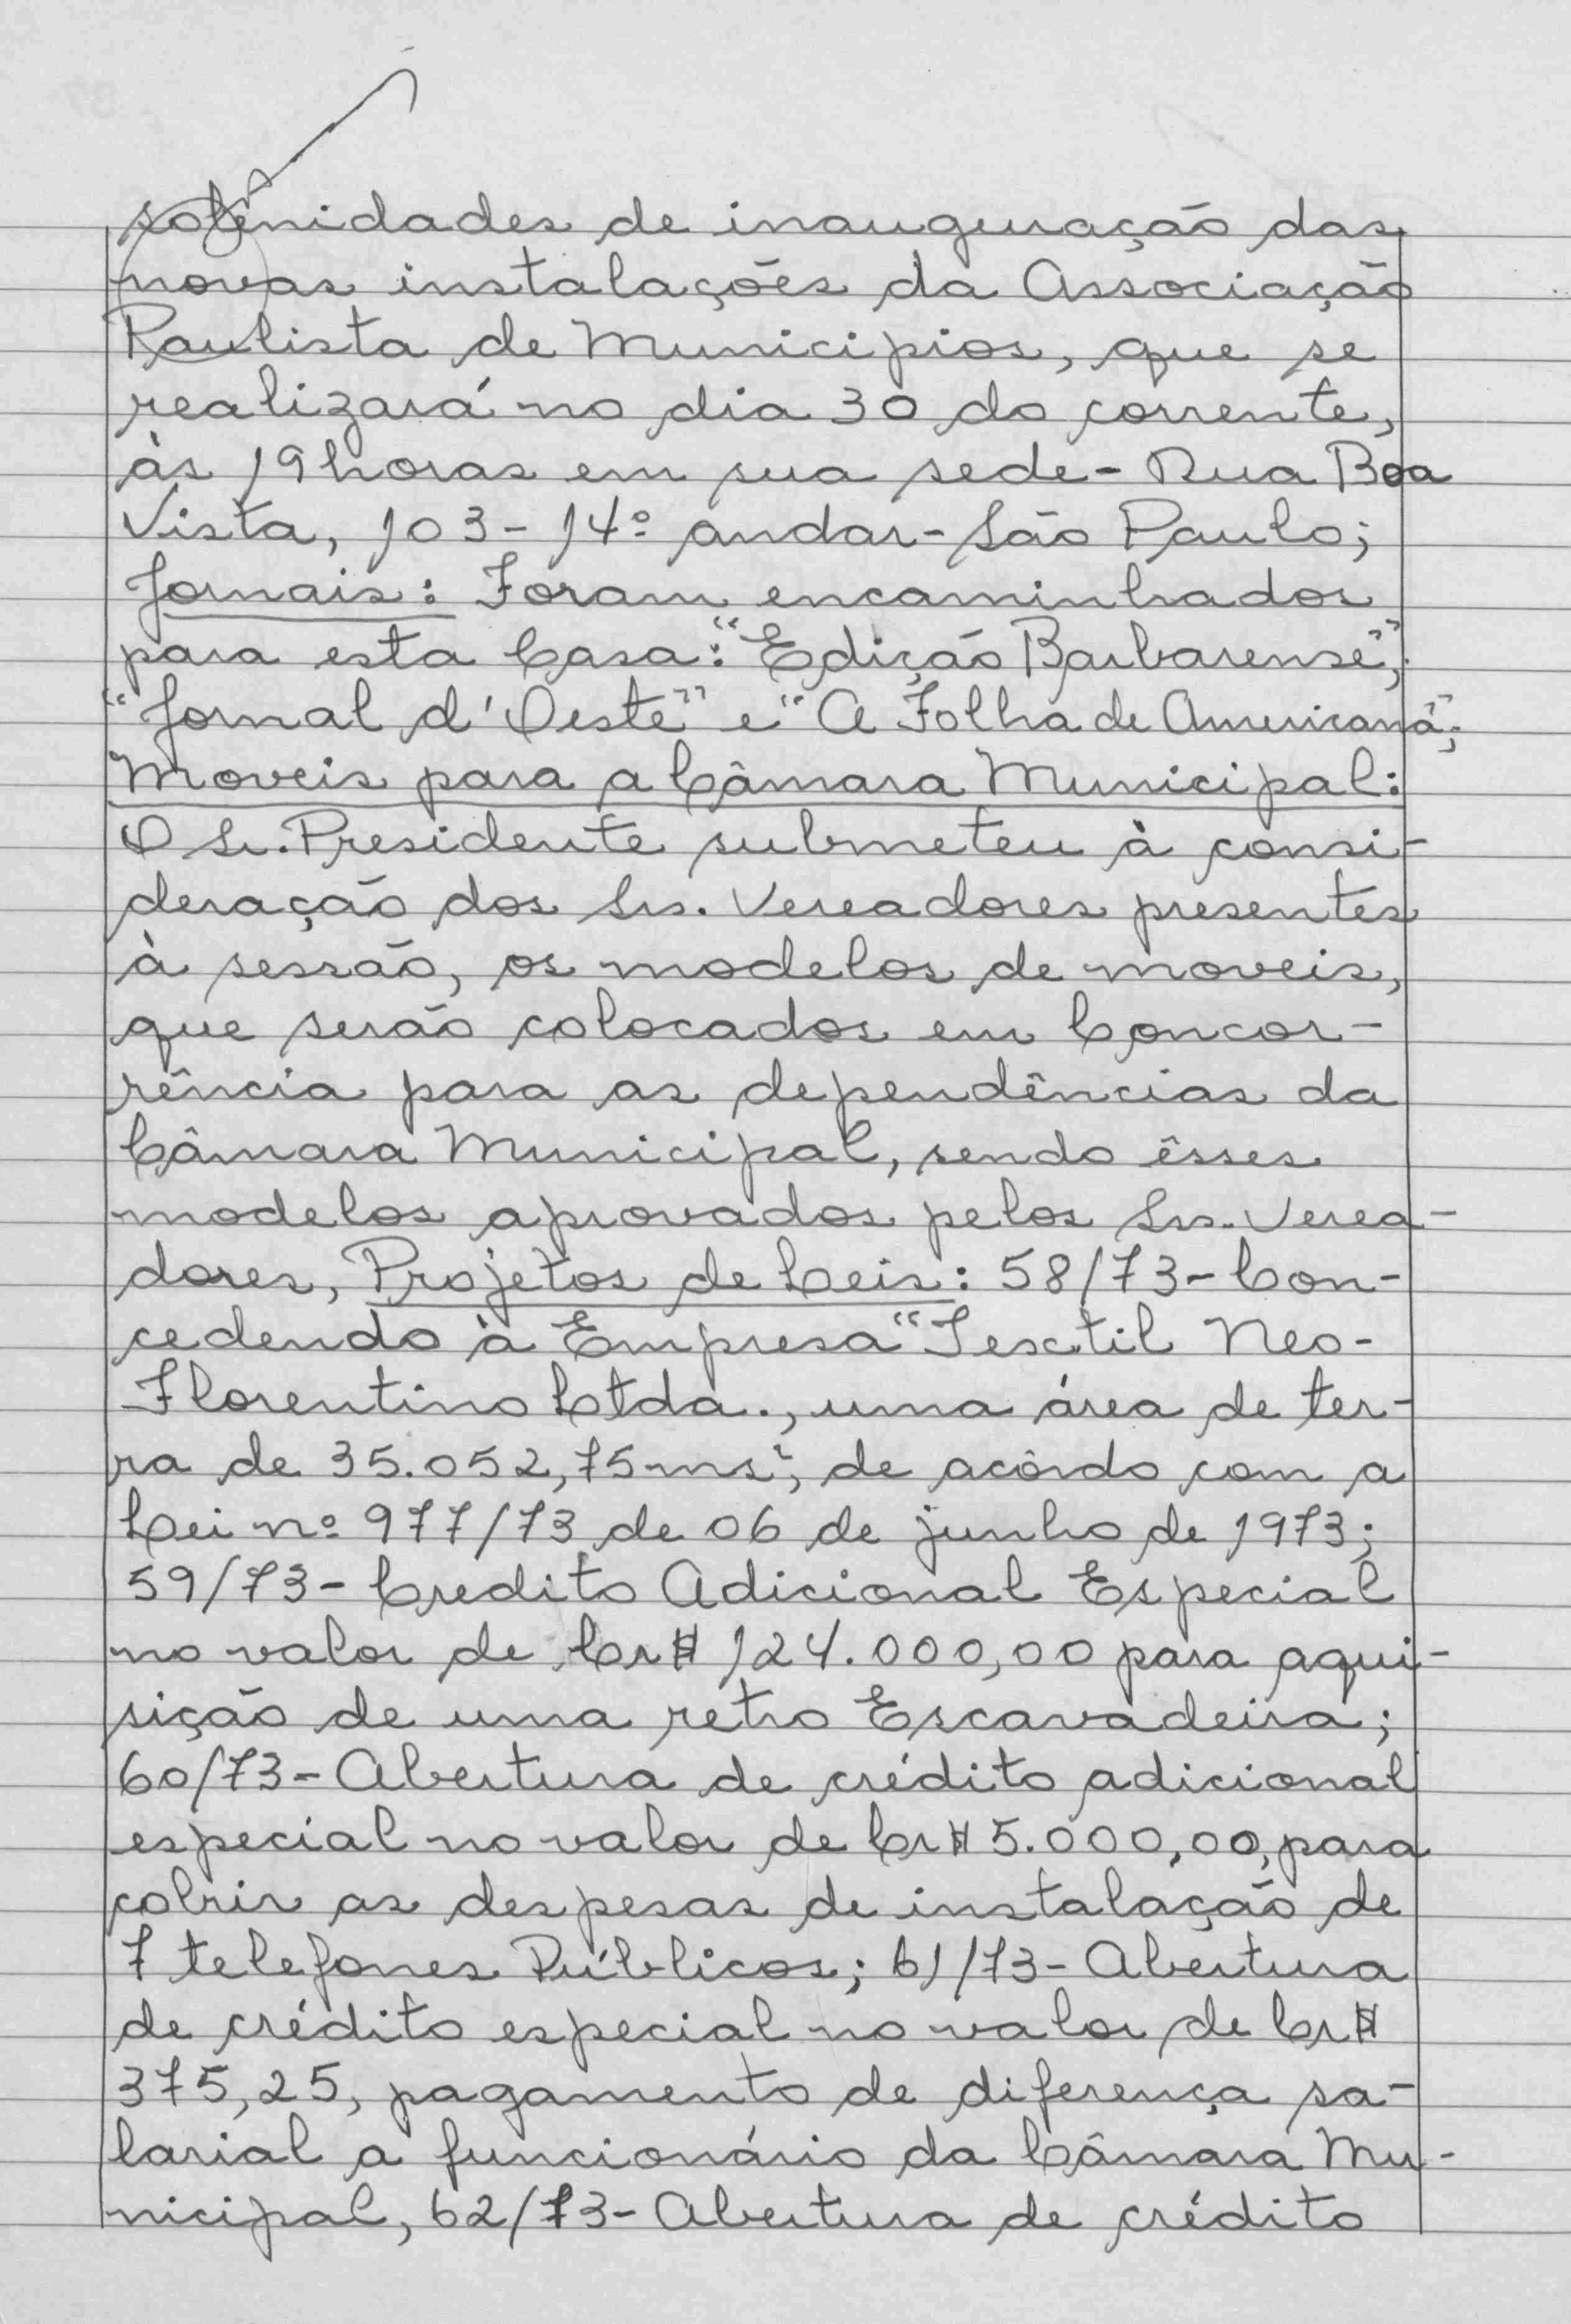 solênidades de inauguração das
novas instalações da Associação
Paulista de Municipios, que se
realizará no dia 30 do corrente,
às 19 horas em sua sede - Rua Boa
Vista, 103 - 14º andar - São Paulo;
Jornais: Foram encaminhados
para esta Casa: "Edição Barbarense",
"Jornal d'Oeste" e "A Folha de Americana";
Moveis para a Câmara Municipal:
O Sr. Presidente submeteu à consi-
deração dos Srs. Vereadores presentes
à sessão, os modelos de moveis,
que serão colocados em Concor-
rência para as dependências da
Câmara Municipal, sendo êsses
modelos aprovados pelos Srs. Verea-
dores, Projetos de Leis: 58/73 - Con-
cedendo à Empresa "Textil Neo-
Florentino Ltda., uma área de ter-
ra de 35.052,75 ms², de acôrdo com a
Lei nº 977/73 de 06 de junho de 1973;
59/73 - Credito Adicional Especial
no valor de Cr$ 124.000,00 para aqui-
sição de uma retro Escavadeira;
60/73 - Abertura de crédito adicional
especial no valor de Cr$ 5.000,00, para
cobrir as despesas de instalação de
7 telefones Públicos; 61/73 - Abertura
de crédito especial no valor de Cr$
375,25, pagamento de diferença sa-
larial a funcionário da Câmara Mu-
nicipal, 62/73 - Abertura de crédito